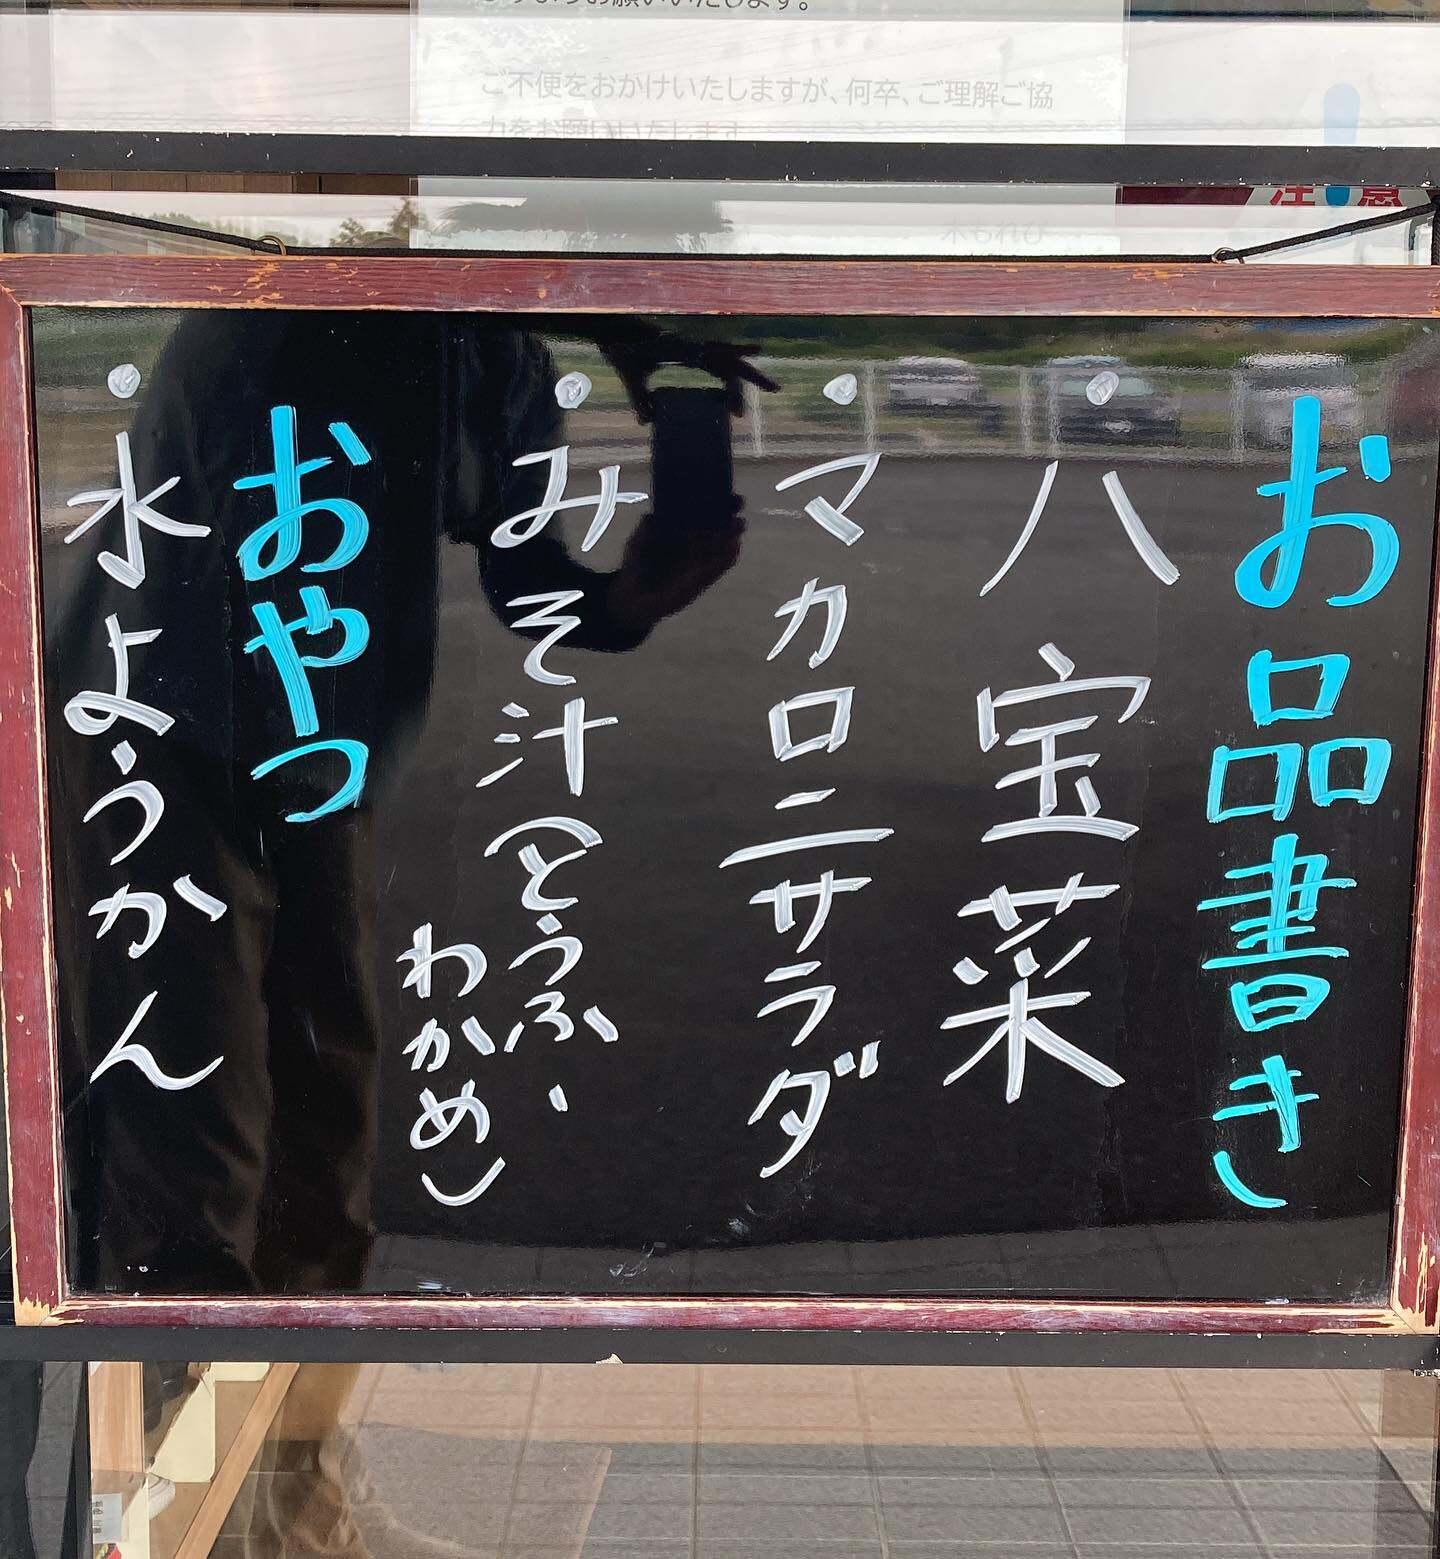 ご不便をおかけいたしますが、何卒、ご理解ご協
力をお願いいたします
注意
お品書き
八宝菜
マカロニサラダ
みそ汁(とうふ、
わかめ)
おやつ
水ようかん